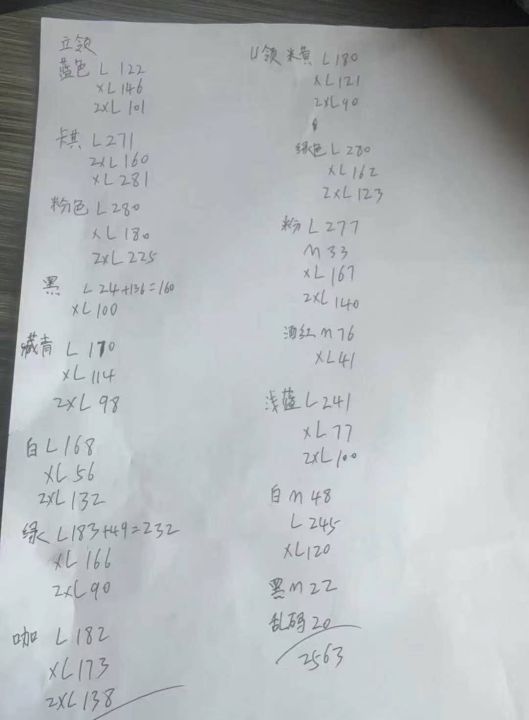 立领
蓝色 L 122
XL 146
2XL 101
卡其 L 271
2XL 160
XL 281
粉色 L 280
XL 180
2XL 225
黑 L 24+136=160
XL 100
藏青 L 170
XL 114
2XL 98
白 L 168
XL 56
2XL 132
绿 L 183+49=232
XL 166
2XL 90
咖 L 182
XL 173
2XL 138
U领 米黄 L 180
XL 121
2XL 90
绿色 L 280
XL 162
2XL 123
粉 L 277
M 33
XL 167
2XL 140
酒红 M 76
XL 41
浅蓝 L 241
XL 77
2XL 100
白 M 48
L 245
XL 120
黑 M 22
乱码 20
2563